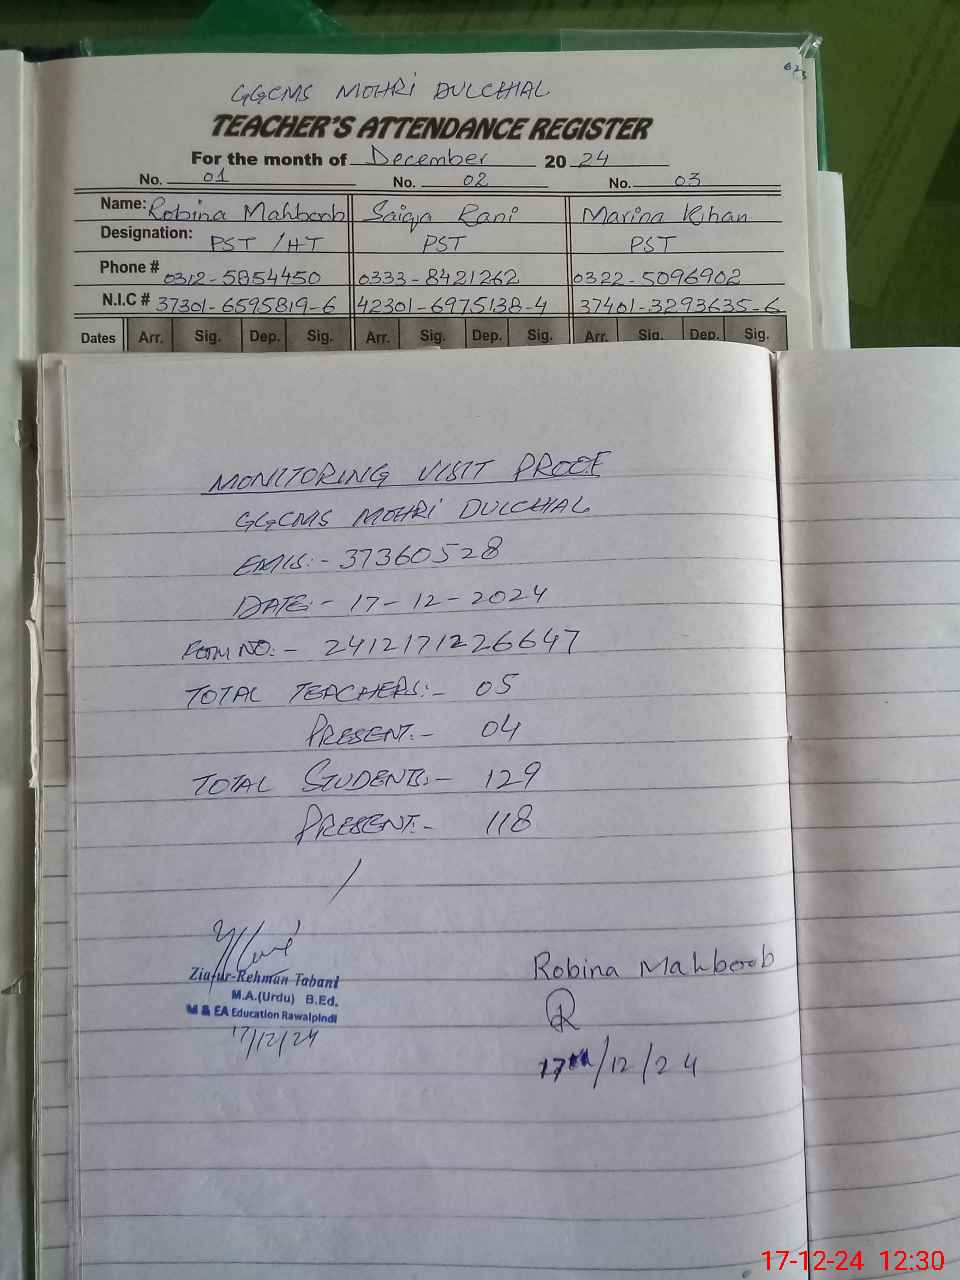 GGCMS MOHRI DULCHAL
TEACHER'S ATTENDANCE REGISTER
For the month of December 20 24
No. 01 No. 02 No. 03
Name: Robina Mahboob Saiqa Rani Marina Khan
Designation: PST / HT PST PST
Phone # 0312-5854450 0333-8421262 0322-5096902
N.I.C # 37301-6595819-6 42301-6975138-4 37401-3293635-6
Dates Arr. Sig. Dep. Sig. Arr. Sig. Dep. Sig. Arr. Sig. Dep. Sig.
MONITORING VISIT PROOF
GGCMS MOHRI DULCHAL
EMIS:- 37360528
DATE:- 17-12-2024
FORM NO:- 2412171226647
TOTAL TEACHERS:- 05
PRESENT:- 04
TOTAL STUDENTS:- 129
PRESENT:- 118
Zia-ur-Rehman Tabani
M.A.(Urdu) B.Ed.
M & EA Education Rawalpindi
17/12/24
Robina Mahboob
17/12/24
17-12-24 12:30